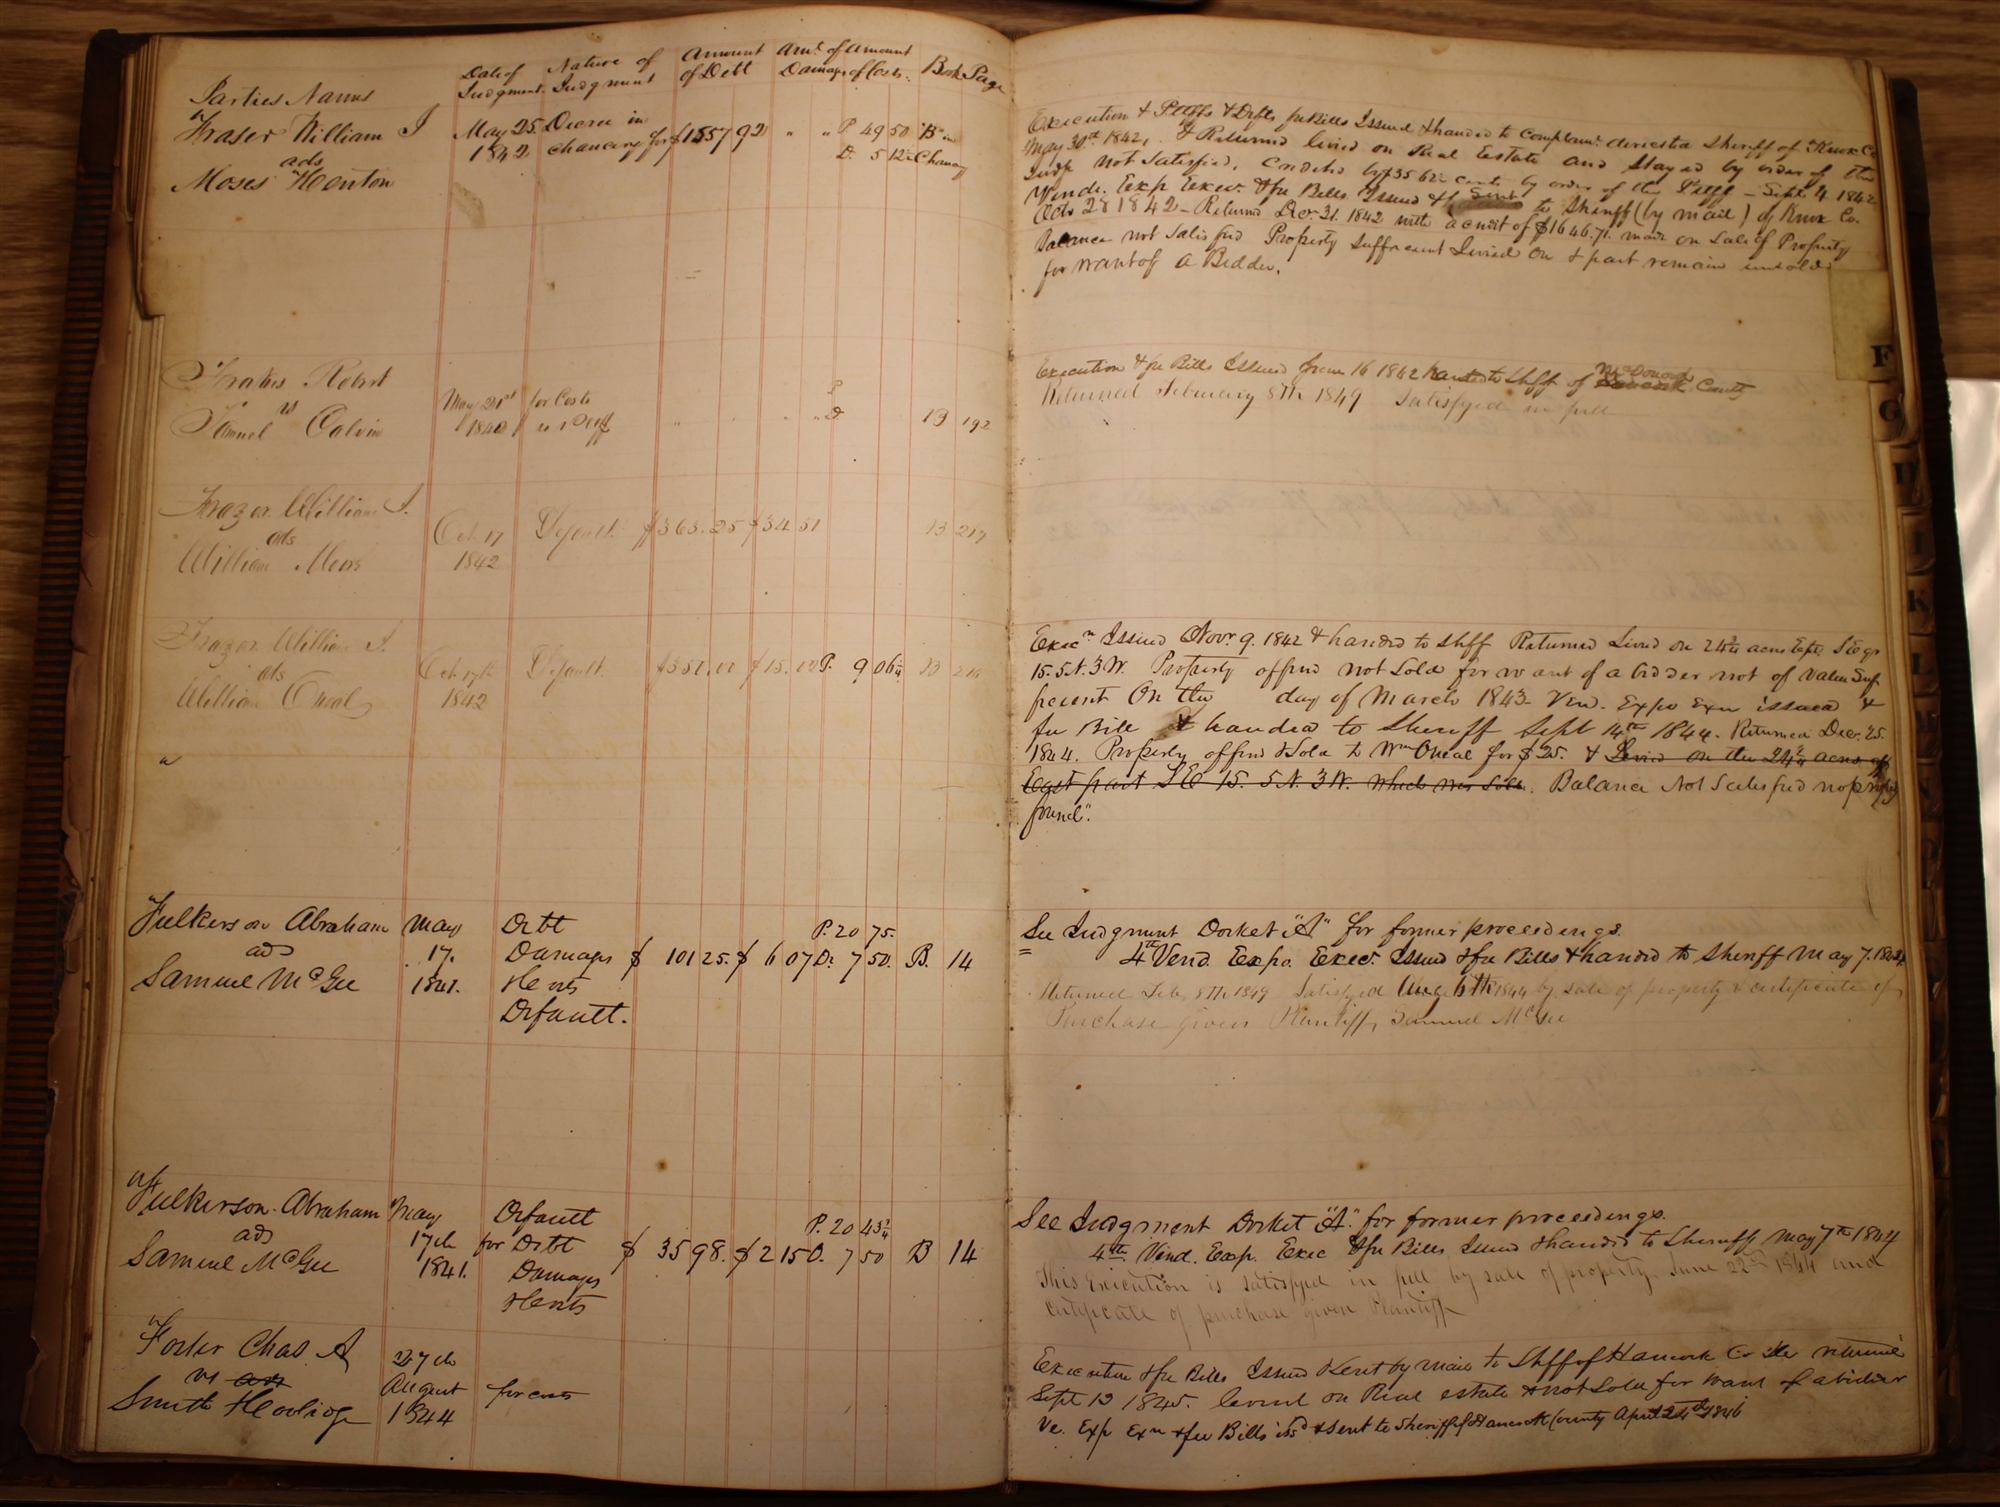 Parties Names
Date of Judgment
Nature of Judgment
Amount of Debt
Amt. of Damage
Amount of Costs
Book
Page
Fraser William J
ads
Moses Heenton
May 25. 1842
Decree in chancery for
$1557 92 " " P 49 50 "B" in
D. 5 12½ Chancery
Execution & Plffs & Defts fee Bills Issued & handed to complaint. directed Sheriff of Knox Co
May 30th 1842, & Returned levied on Real Estate and Stayed by order of the
Judge not Satisfied. Credited by $35 62½ cents by order of the Plff – Sept 4 1842
Vendi. Exp Exec. & fee Bills Issued & Sent to Sheriff (by mail) of Knox Co.
Octo 28 1842 – Returned Dec 21. 1842 with a credit of $1646.71. made on Sale of Property
Balance not Satisfied Property Sufficient Levied on & part remain unsold
for want of a Bidder.
Frakes Robert
vs
Samuel Calvin
May 21st 1842
for Costs
vs Plff
" " " P
" D 13 192
Execution & fee Bills Issued June 16 1842 handed to Shff of McDonough Hancock County
Returned February 8th 1849 Satisfyed in full
Frazor William J.
ads
William Moore
Oct. 17 1842
Default
$363.25 $34 51 13 217
Frazor William J.
ads
William Oneal
Oct 17th 1842
Default
$351.00 $15.00 P. 9 06¼ B 216
Execn Issued Novr 9. 1842 & handed to Shff Returned Levied on 24¾ acres Ept SEqr
15. 5 N. 3 W. Property offered not Sold for want of a bidder not of value Suf
ficient On the day of March 1843 – Ven. Expo Exn issued &
fee Bill & handed to Sheriff Sept 14th 1844. Returned Dec. 25.
1844. Property offered & Sold to Wm Oneal for $25. & Levied on the 24¾ acres off
East part SE 15. 5 N. 3 W. which was Sold. Balance Not Satisfied no property
found".
Fulkerson Abraham
ads
Samuel McGee
May 17. 1841.
Debt
Damages
& Costs
Default.
P. 20 75.
$ 101 25. $ 6 07 D. 7 50. B. 14
See Judgment Docket "A" for former proceedings.
4th Vend. Expo. Exec. Issued & fee Bills & handed to Sheriff May 7. 1844
Returned Feb. 8th 1849 Satisfyed Aug 6th 1844 by sale of property & certificate of
Purchase given Plantiff, Samuel McGee
Fulkerson. Abraham
ads
Samuel McGee
May 17th 1841.
Default
for Debt
Damages
& Costs
P. 20 43¾
$ 35 98. $ 2 15 D. 7 50 B 14
See Judgment Docket "A." for former proceedings.
4th Vend. Exp. Exec & fee Bills Issued & handed to Sheriff May 7th 1844
This Execution is satisfyed in full by sale of property. June 22nd 1844 and
certificate of purchase given Plantiff
Foster Chas A
vs ads
Smith
27th August 1844
for costs
Execution & fee Bills Issued & Sent by mail to Shff of Hancock Co Ills returned
Sept 13 1845. levied on Real estate & not Sold for want of a bidder
Ve. Exp Exn & fee Bills issd & sent to Sheriff of Hancock County April 24th 1846
F
G
H
I
K
L
M
N